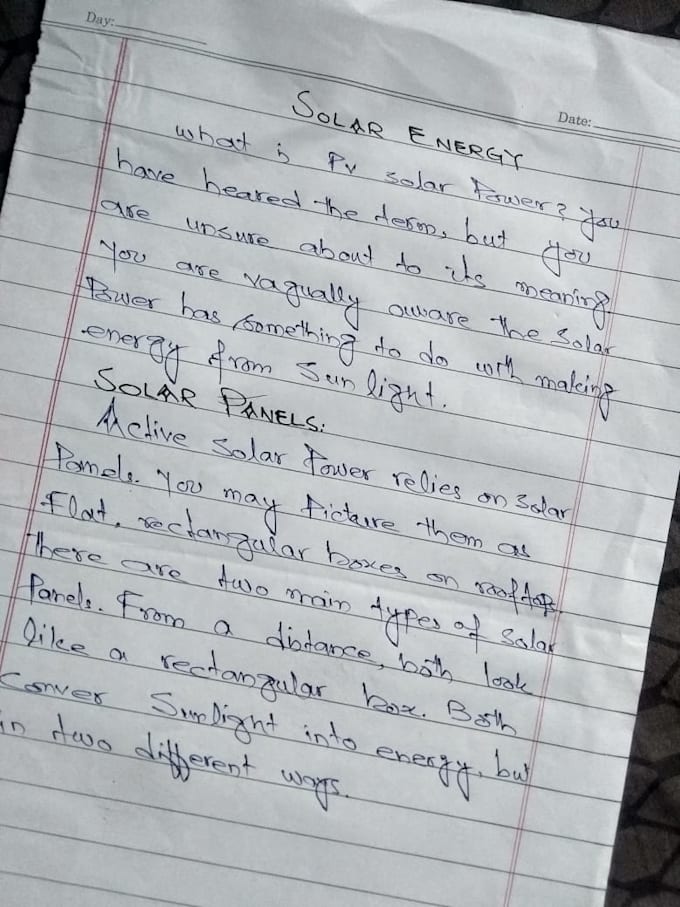 Day:
Date:
SOLAR ENERGY
what is Pv solar Power? you
have heared the term, but you
are unsure about to its meaning.
You are vagually aware the Solar
Power has something to do with making
energy from Sun light.
SOLAR PANELS:
Active Solar Power relies on Solar
Panels. You may Picture them as
Flat, rectangular boxes on rooftops
There are two main types of Solar
Panels. From a distance, both look
like a rectangular box. Both
Conver Sunlight into energy, but
in two different ways.